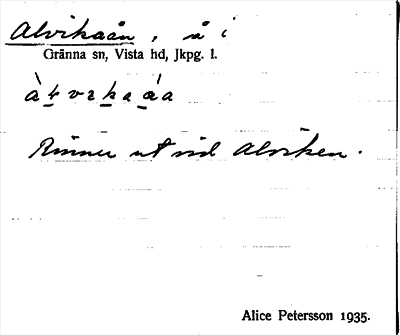 Alvikaån, å i
Gränna sn, Vista hd, Jkpg. l.
Rinner ut vid Alviken.
Alice Petersson 1935.